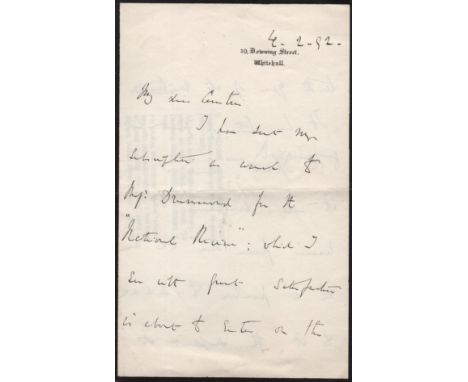 4. 2. 92.
10, Downing Street,
Whitehall.
My dear
I have sent my
subscription as usual to
Drummond for the
"National Review"; which I
see with great satisfaction
is about to enter on the